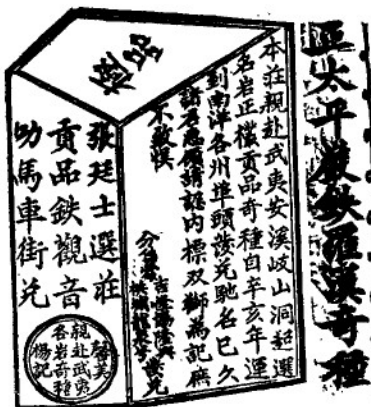 正太平巖鉄羅漢奇種
本莊親赴武夷安溪岐山洞超選
名岩正欉貢品奇種自辛亥年運
到南洋各州埠頭發兌馳名已久
諸君惠顧請認內標双獅為記庶
不致悞
張廷士選莊
貢品鉄觀音
叻馬車街兌
馨美
親赴武夷
各岩奇種
楊記